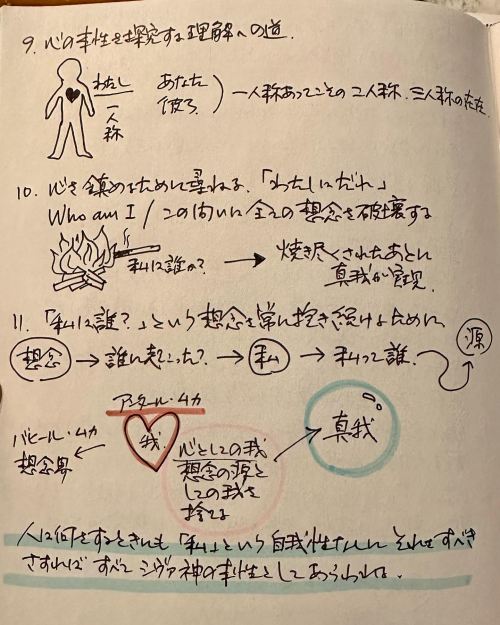 9. 心の本性を探究する理解への道.
わたし
一人称
あなた
彼ら
一人称あってこその 二人称. 三人称の存在.
10. 心を鎮めるために尋ねる.「わたしはだれ」
Who am I / この問いに全ての想念を破壊する
私は誰か?
→ 焼き尽くされたあとに
真我が実現.
11. 「私は誰?」という想念を常に抱き続けるために.
想念 → 誰に起こった? → 私 → 私って誰.
源
アンタール・ムカ
我
バヒール・ムカ
想念界
心としての我
想念の源と
しての我を
捨てる
真我
人は何をするときにも「私」という自我性なしに それをすべき
さすれば すべて シヴァ神の本性として あらわれる.